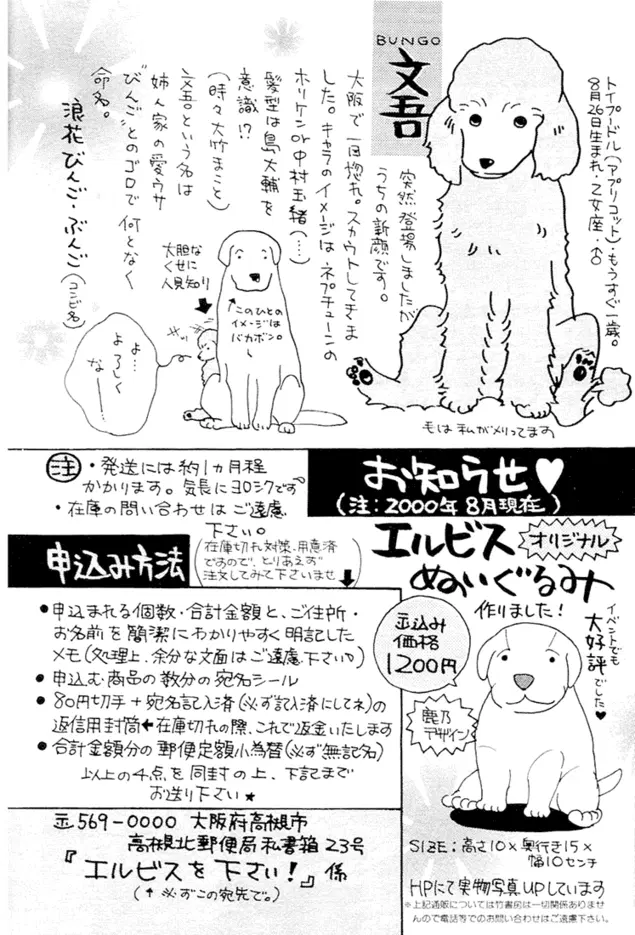 BUNGO
文吾
トイプードル(アプリコット)・もうすぐ一歳。
8月26日生まれ・乙女座・♂
突然登場しましたが
うちの新顔です。
大阪で一目惚れ。スカウトしてきま
した。キャラのイメージはネプチューンの
ホリケンor中村玉緒(…)
髪型は島大輔を
意識!?
(時々大竹まこと)
文吾という名は
姉ん家の愛ウサ
"びんご"とのゴロで何となく
命名。
浪花びんご・ぶんご(コンビ名)
大胆な
くせに
人見知り
このひとの
イメージは
バカボン。
よ…
よろしく
な…
毛は私がメリってます
お知らせ♥
(注:2000年8月現在)
㊟・発送には約1ヵ月程
かかります。気長にヨロシクです
・在庫の問い合わせはご遠慮
下さい。
(在庫切れ対策、用意済
ですので、とりあえず
注文してみて下さいませ)
申込み方法
●申込まれる個数・合計金額と、ご住所・
お名前を簡潔にわかりやすく明記した
メモ(処理上、余分な文面はご遠慮下さい♡)
●申込む商品の数分の宛名シール
●80円切手+宛名記入済(必ず記入済にしてネ)の
返信用封筒←在庫切れの際、これで返金いたします
●合計金額分の郵便定額小為替(必ず無記名)
以上の4点を同封の上、下記まで
お送り下さい★
〒569-0000 大阪府高槻市
高槻北郵便局私書箱23号
『エルビスを下さい!』係
(↑必ずこの宛先で。)
エルビス
オリジナル
ぬいぐるみ
作りました!
イベントでも
大好評でした♥
〒込み
価格
1200円
鹿乃
デザイン
SIZE:高さ10×奥行き15×
幅10センチ
HPにて実物写真UPしています
※上記通販については竹書房は一切関係ありませ
んので電話等でのお問い合わせはご遠慮下さい。